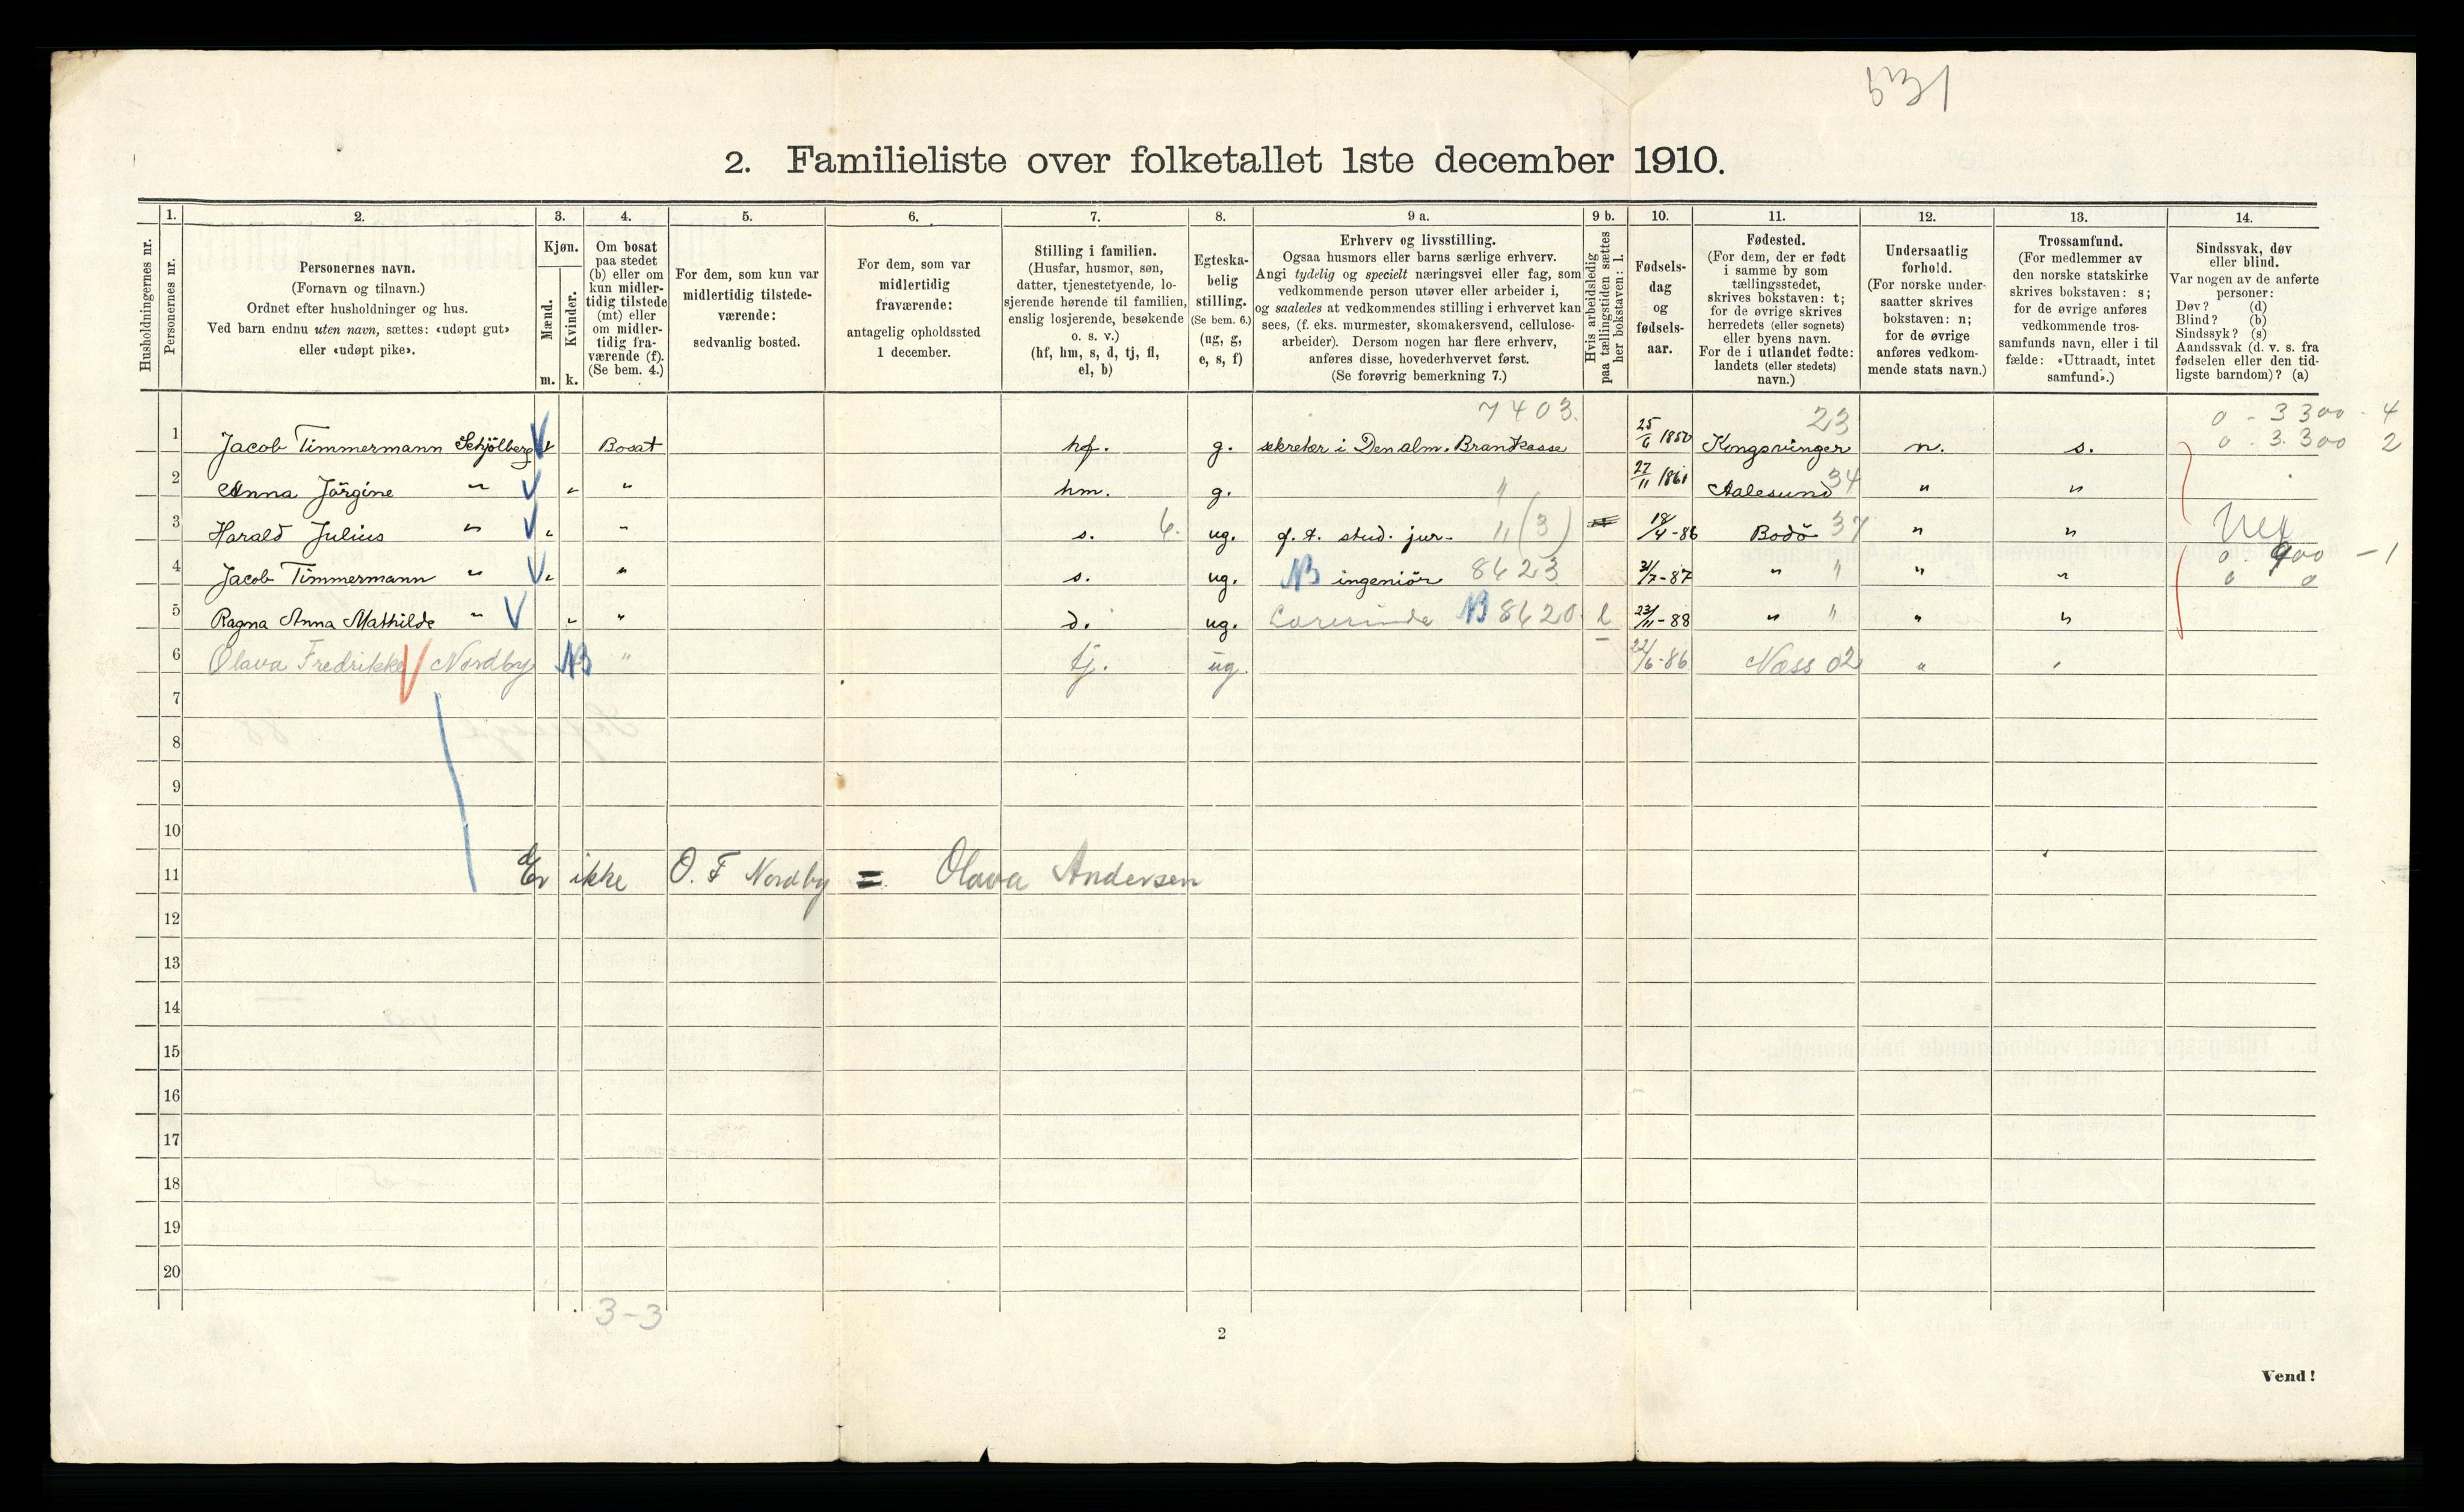 531
2. Familieliste over folketallet 1ste december 1910.
1. 2. 3. 4. 5. 6. 7. 8. 9 a. 9 b. 10. 11. 12. 13. 14.
Husholdningernes nr.
Personernes nr.
Personernes navn.
(Fornavn og tilnavn.)
Ordnet efter husholdninger og hus.
Ved barn endnu uten navn, sættes: «udøpt gut»
eller «udøpt pike».
Kjøn.
Mænd.
Kvinder.
m. k.
Om bosat
paa stedet
(b) eller om
kun midler-
tidig tilstede
(mt) eller
om midler-
tidig fra-
værende (f).
(Se bem. 4.)
For dem, som kun var
midlertidig tilstede-
værende:
sedvanlig bosted.
For dem, som var
midlertidig
fraværende:
antagelig opholdssted
1 december.
Stilling i familien.
(Husfar, husmor, søn,
datter, tjenestetyende, lo-
sjerende hørende til familien,
enslig losjerende, besøkende
o. s. v.)
(hf, hm, s, d, tj, fl,
el, b)
Egteska-
belig
stilling.
(Se bem. 6.)
(ug, g,
e, s, f)
Erhverv og livsstilling.
Ogsaa husmors eller barns særlige erhverv.
Angi tydelig og specielt næringsvei eller fag, som
vedkommende person utøver eller arbeider i,
og saaledes at vedkommendes stilling i erhvervet kan
sees, (f. eks. murmester, skomakersvend, cellulose-
arbeider). Dersom nogen har flere erhverv,
anføres disse, hovederhvervet først.
(Se forøvrig bemerkning 7.)
Hvis arbeidsledig
paa tællingstiden sættes
her bokstaven: l.
Fødsels-
dag
og
fødsels-
aar.
Fødested.
(For dem, der er født
i samme by som
tællingsstedet,
skrives bokstaven: t;
for de øvrige skrives
herredets (eller sognets)
eller byens navn.
For de i utlandet fødte:
landets (eller stedets)
navn.)
Undersaatlig
forhold.
(For norske under-
saatter skrives
bokstaven: n;
for de øvrige
anføres vedkom-
mende stats navn.)
Trossamfund.
(For medlemmer av
den norske statskirke
skrives bokstaven: s;
for de øvrige anføres
vedkommende tros-
samfunds navn, eller i til
fælde: «Uttraadt, intet
samfund».)
Sindssvak, døv
eller blind.
Var nogen av de anførte
personer:
Døv? (d)
Blind? (b)
Sindssyk? (s)
Aandssvak (d. v. s. fra
fødselen eller den tid-
ligste barndom)? (a)
7403. 23 0 - 3300 - 4
1 Jacob Timmermann Schjölberg Bosat hf. g. sekretær i Den alm. Brandkasse 25/6 1850 Kongsvinger n. s. 0 - 3.300 2
2 Anna Jörgine " " " hm. g. " 27/11 1861 Aalesund 34 " "
3 Harald Julius " " " s. 6. ug. f. t. stud. jur. " (3) 18/4 -86 Bodö 37 " "
0. 900 - 1
4 Jacob Timmermann " " " s. ug. NB ingeniör 8423 31/7 -87 " " " " 0 0
5 Ragna Anna Mathilde " " " d. ug. Lærerinde NB 8620 l 23/11 -88 " " " "
6 Olava Fredrikke Nordby NB " tj. ug. 22/6 -86 Næss 02 " "
7
8
9
10
11 Er ikke O. F Nordby = Olava Andersen
12
13
14
15
16
17
18
19
20
3-3
2
Vend!